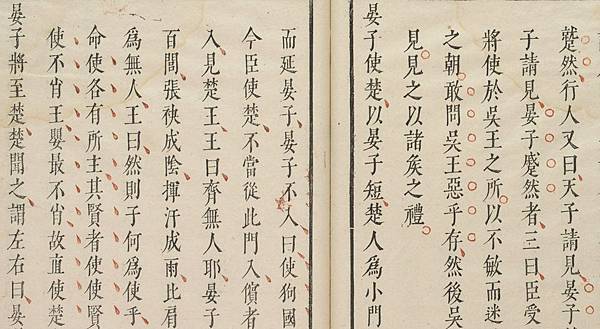 蹵然行人又曰天子請見晏子
子請見晏子蹙然者三曰臣受
將使於吳王之所以不敏而迷
之朝敢問吳王惡乎存然後吳
見見之以諸矦之禮
晏子使楚以晏子短楚人爲小門
而延晏子晏子不入曰使狗國
今臣使楚不當從此門入儐者
入見楚王王曰齊無人耶晏子
百閭張袂成陰揮汗成雨比肩
爲無人王曰然則子何爲使乎
命使各有所主其賢者使使賢
使不肖王嬰最不肖故直使楚
晏子將至楚楚聞之謂左右曰晏